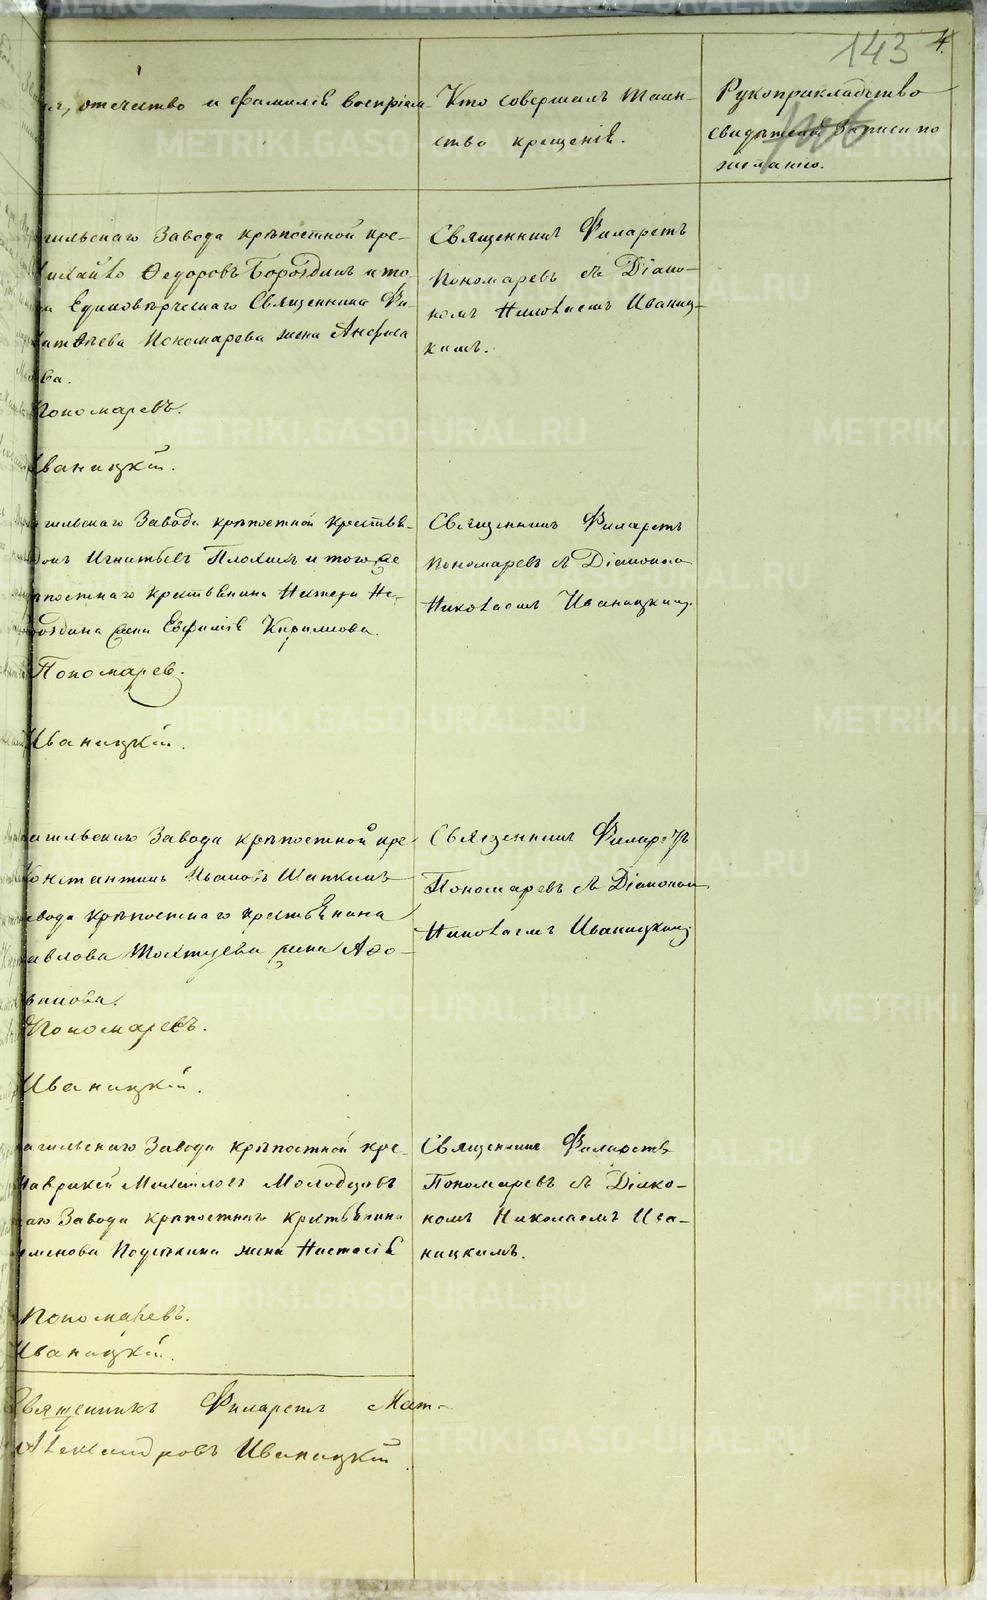 143 4.
имя, отечество и фамилія воспріем-
Кто совершалъ таин-
ство крещенія.
Рукоприкладство
свидѣтелей записи по
желанію.
гильскаго Завода крѣпостной кре-
Михайло Ѳедоровъ Бороздинъ и то-
Единовѣрческаго Священника Фи-
Пономарева жена Анфиса
ва.
Пономаревъ.
Иваницкій.
Священникъ Филаретъ
Пономаревъ съ Діако-
номъ Николаемъ Иваниц-
кимъ.
гильскаго Завода крѣпостной крестья-
Игнатьевъ Плохихъ и того же
крѣпостнаго крестьянина
жена Евфимія Кирилова.
Пономарев.
Иваницкій.
Священникъ Филаретъ
Пономаревъ съ Діакономъ
Николаемъ Иваницкимъ.
агильскаго Завода крѣпостной кре-
Константинъ Ивановъ Шапкинъ
завода крѣпостнаго крестьянина
авлова жена Аѳо-
Пономаревъ.
Иваницкій.
Священникъ Филаретъ
Пономаревъ съ Діакономъ
Николаемъ Иваницкимъ
агильскаго Завода крѣпостной кре-
Маврикей Молодцовъ
аго Завода крѣпостнаго крестьянина
еменова жена Настасія
Пономаревъ.
Иваницкій.
Священникъ Филаретъ
Пономаревъ съ Діако-
номъ Николаемъ Ива-
ницкимъ.
Священникъ Филаретъ Мат-
Александровъ Иваницкій.
METRIKI.GASO-URAL.RU